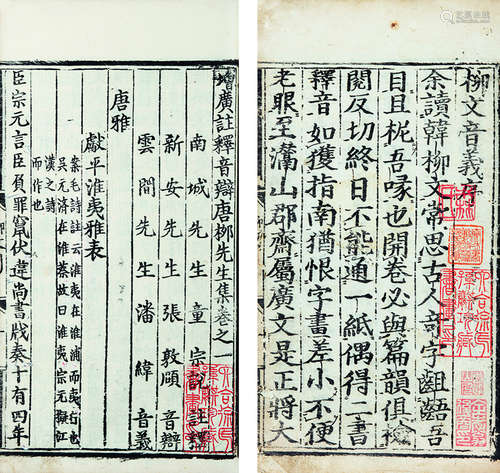 柳文音義序
余讀韓柳文常思古人奇字齟齬吾
目且棿吾喙也開卷必與篇韻俱檢
閱反切終日不能通一紙偶得一書
釋音如獲指南猶恨字畫差小不便
老眼至灊山郡齋屬廣文是正將大
增廣註釋音辯唐柳先生集卷之一
南城先生童宗說註釋
新安先生張敦頤音辯
雲間先生潘緯音義
唐雅
獻平淮夷雅表
案毛詩註云淮夷在淮浦而夷行也
吳元濟在淮蔡故曰淮夷宗元擬江
漢之詩
而作也
臣宗元言臣負罪竄伏違尚書牋奏十有四年